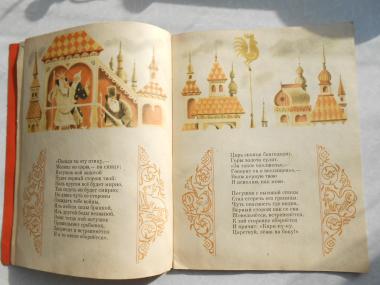 «Посади ты эту птицу,—
Молвил он царю,— на спицу;
Петушок мой золотой
Будет верный сторож твой:
Коль кругом всё будет мирно,
Так сидеть он будет смирно;
Но лишь чуть со стороны
Ожидать тебе войны,
Иль набега силы бранной,
Иль другой беды незваной,
Вмиг тогда мой петушок
Приподымет гребешок,
Закричит и встрепенется
И в то место обернется».
Царь скопца благодарит,
Горы золота сулит.
«За такое одолженье,—
Говорит он в восхищенье,—
Волю первую твою
Я исполню, как мою».
Петушок с высокой спицы
Стал стеречь его границы.
Чуть опасность где видна,
Верный сторож как со сна
Шевельнется, встрепенется,
К той сторонке обернется
И кричит: «Кири-ку-ку.
Царствуй, лёжа на боку!»